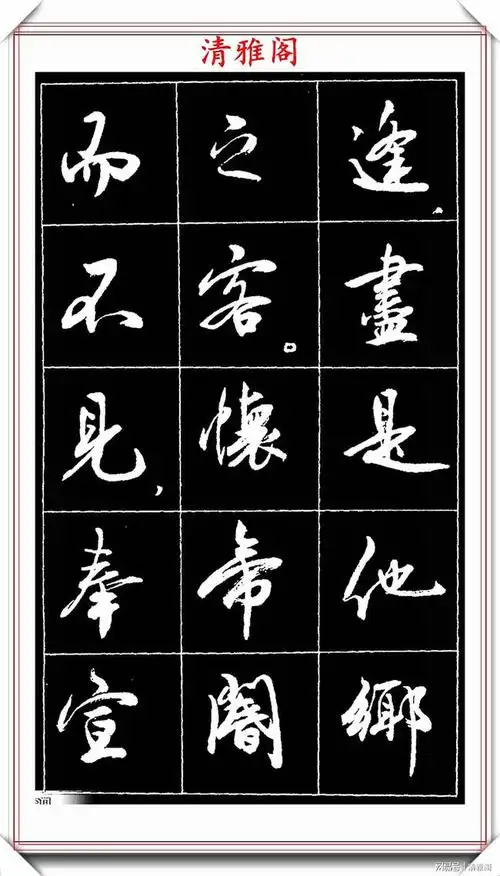 清雅阁
逢,盡是他鄉
之客。懷帝閽
而不見,奉宣
搜狐号@清雅阁